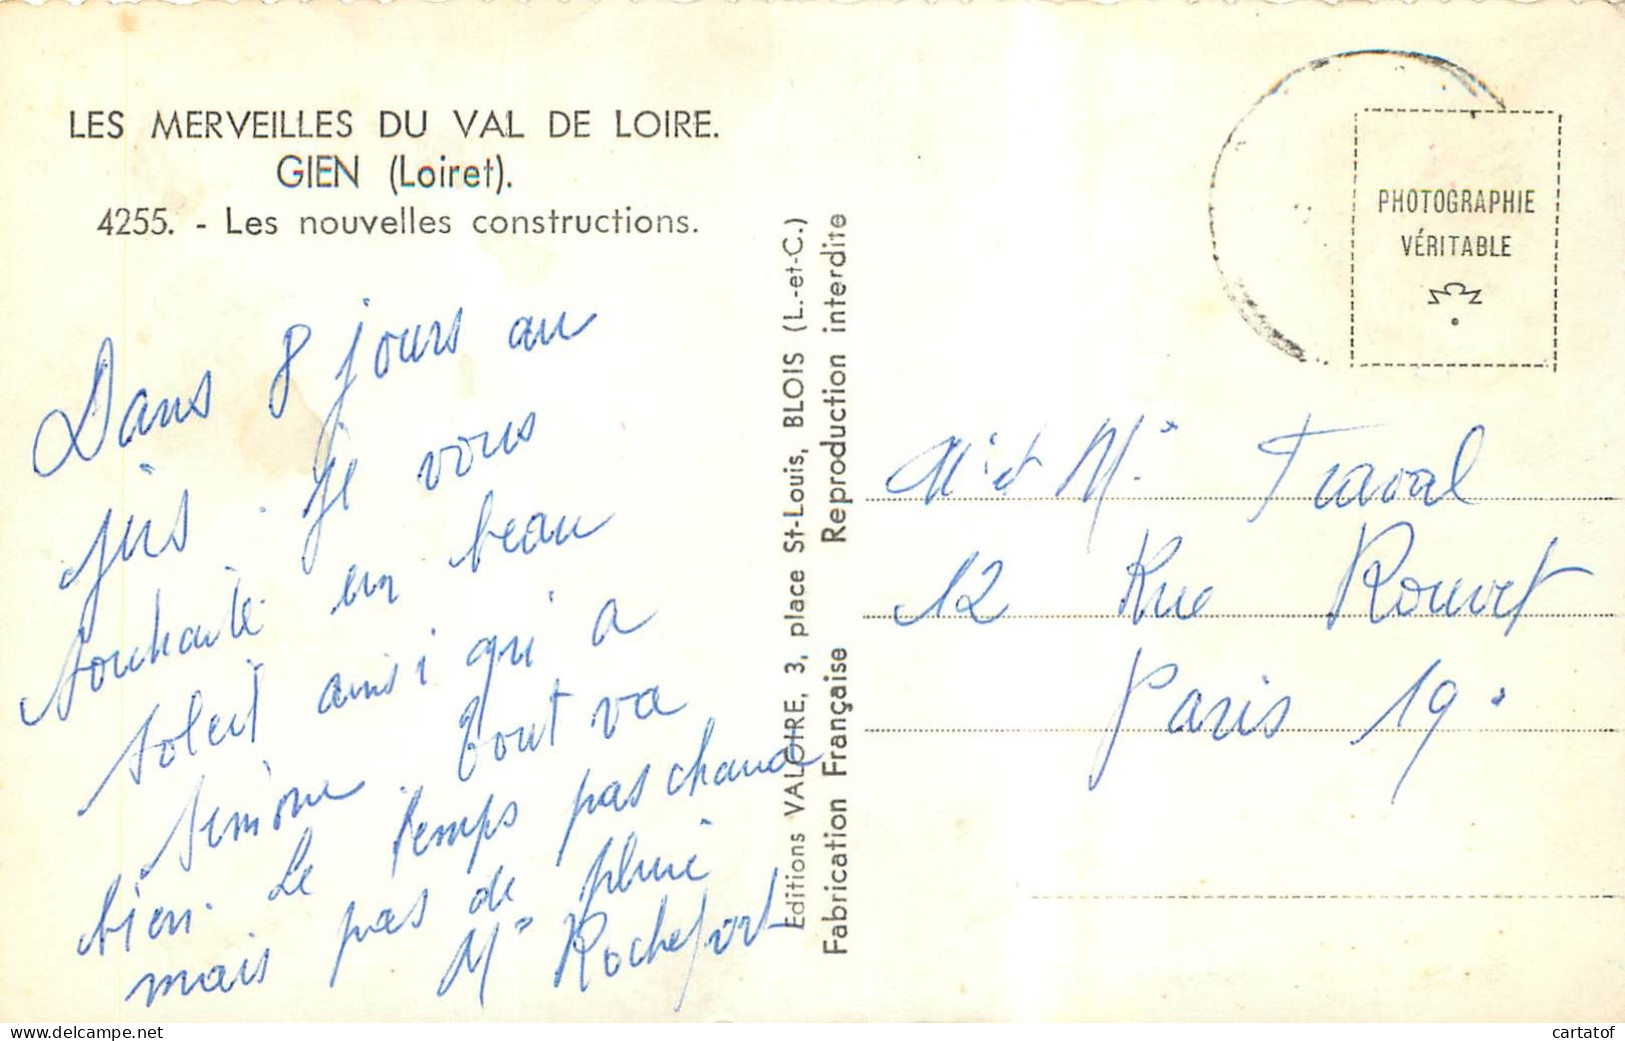 LES MERVEILLES DU VAL DE LOIRE.
GIEN (Loiret).
4255. - Les nouvelles constructions.
Dans 8 jours au
jus. Je vous
souhaite un beau
soleil ainsi qu'à
Simone. Tout va
bien. Le temps pas chaud
mais pas de pluie
Me Rochefort
Editions VALOIRE, 3, place St-Louis, BLOIS (L.-et-C.)
Fabrication Française Reproduction interdite
PHOTOGRAPHIE
VÉRITABLE
Mr et Me Traval
12 Rue Rouvet
Paris 19e
cartatof